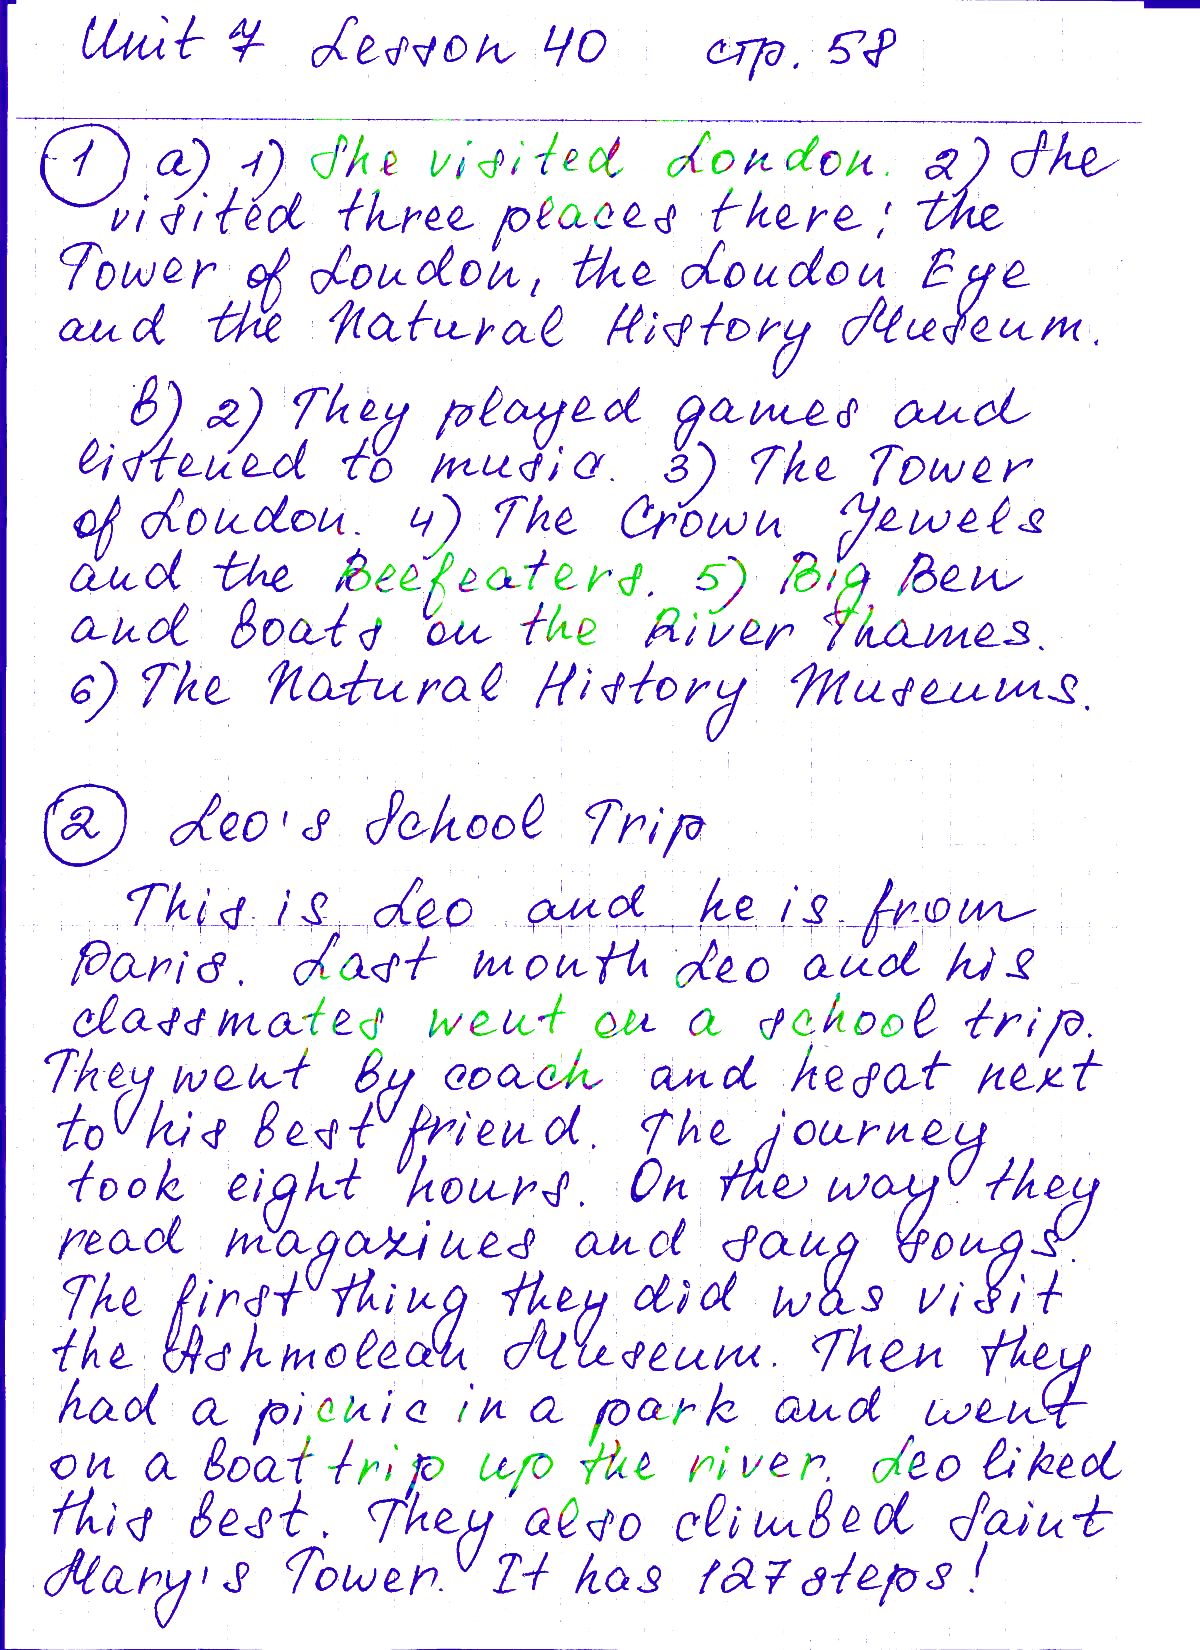 Unit 7 Lesson 40 стр. 58
1 a) 1) She visited London. 2) She
visited three places there: the
Tower of London, the London Eye
and the Natural History Museum.
b) 2) They played games and
listened to music. 3) The Tower
of London. 4) The Crown Jewels
and the Beefeaters. 5) Big Ben
and boats on the River Thames.
6) The Natural History Museums.
2 Leo's School Trip
This is Leo and he is from
Paris. Last month Leo and his
classmates went on a school trip.
They went by coach and he sat next
to his best friend. The journey
took eight hours. On the way they
read magazines and sang songs.
The first thing they did was visit
the Ashmolean Museum. Then they
had a picnic in a park and went
on a boat trip up the river. Leo liked
this best. They also climbed Saint
Mary's Tower. It has 127 steps!